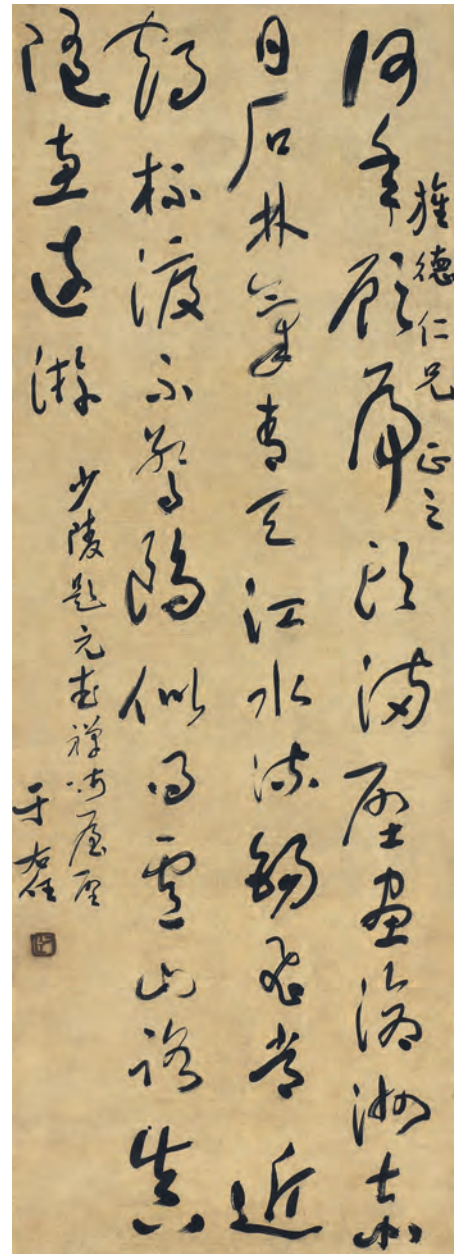 德仁兄正之
何年顧虎頭滿壁畫滄洲赤
日石林氣青天江水流錫飛常近
鶴杯渡不驚鷗似得廬山路真
隨惠遠游
少陵題元武禪師屋壁
于右任